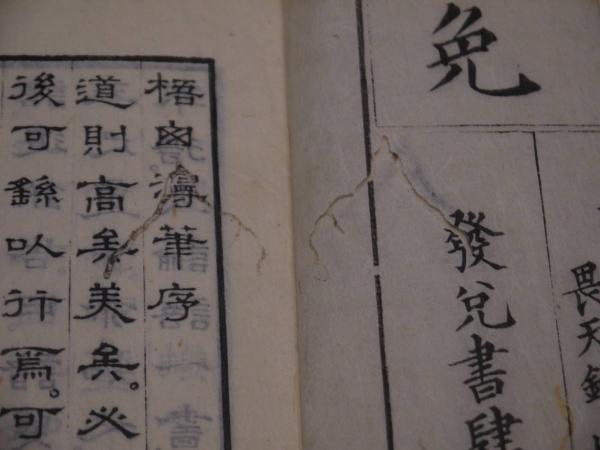 免
畏天
發兌書肆
梧囱漫筆序
道則高矣美矣。必
後可繇以行焉。可